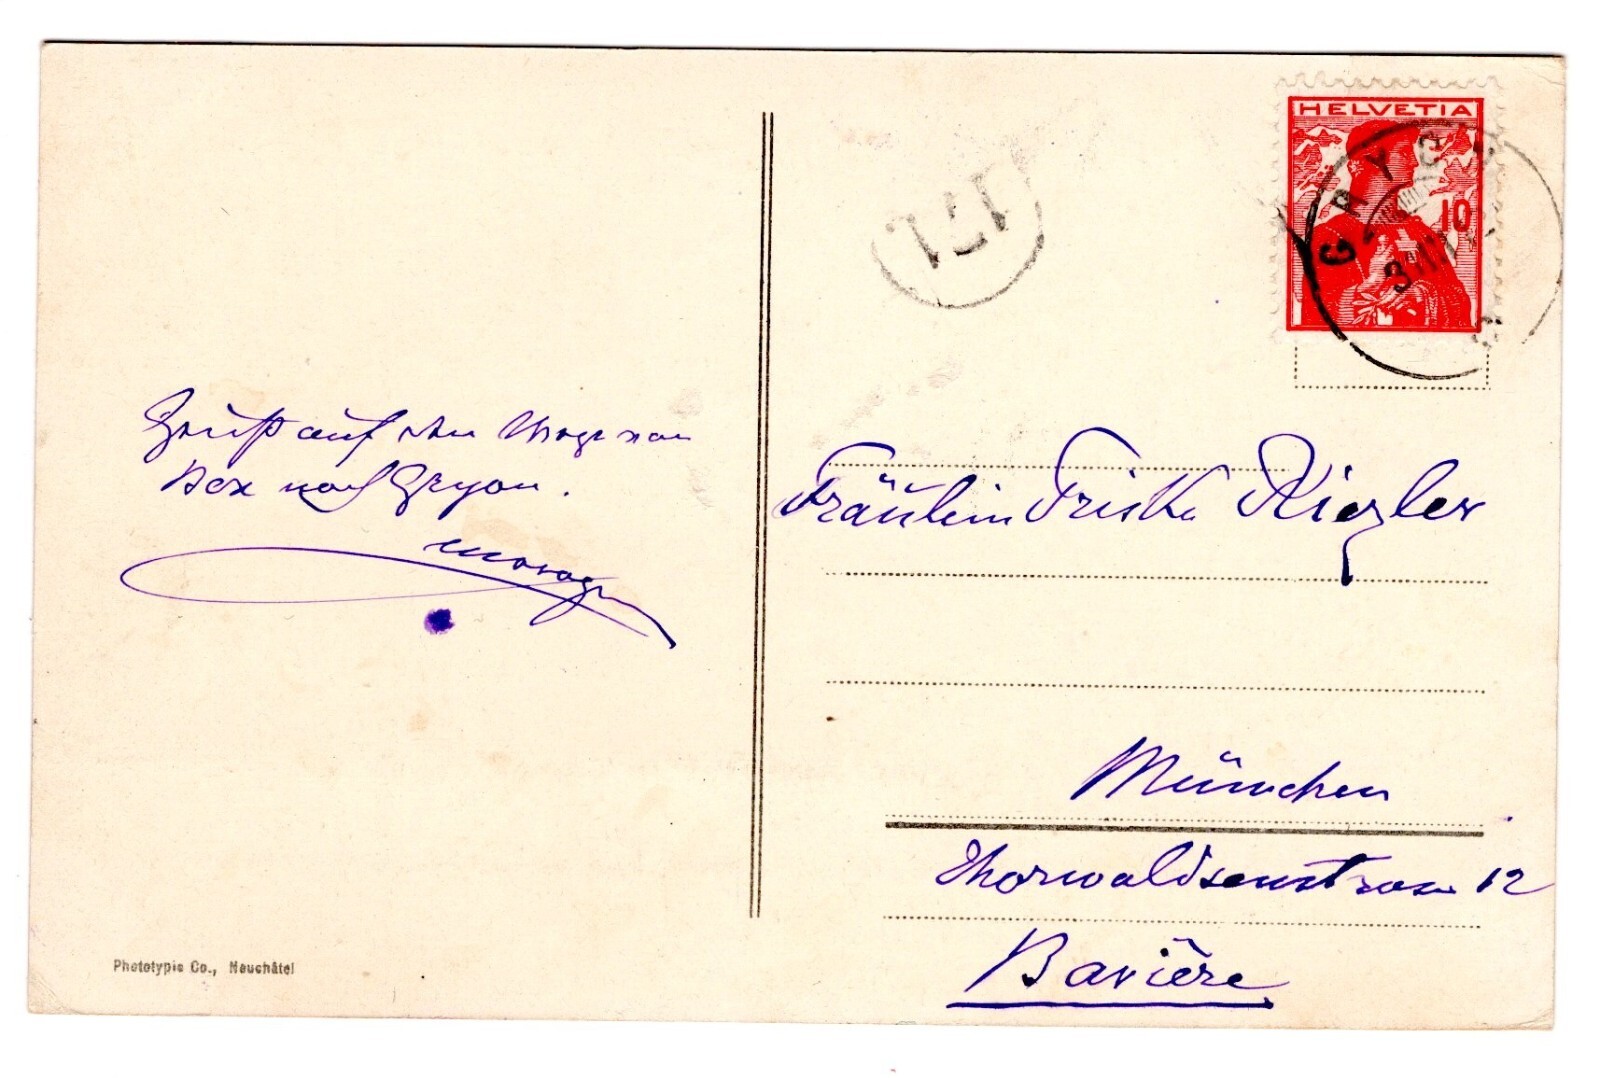 Gruß auf dem Wege von
Bex nach Gryon.
HELVETIA
10
GRYON
171
Fräulein Friska Riezler
München
Thorwaldsenstrasse 12
Bavière
Phototypie Co., Neuchâtel